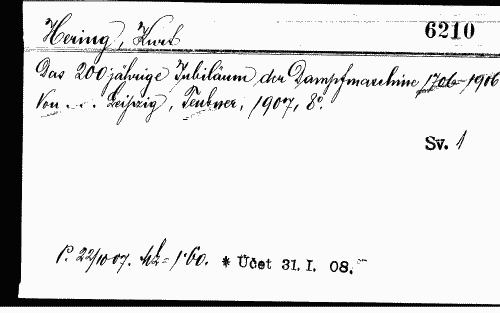 Hering, Kurt 6210
Das 200jährige Jubiläum der Dampfmaschine 1706-1906
Von . . . Leipzig, Teubner, 1907, 8°.
Sv. 1
P. 22/10 07. Mk = 1·60. * Účet 31. I. 08.